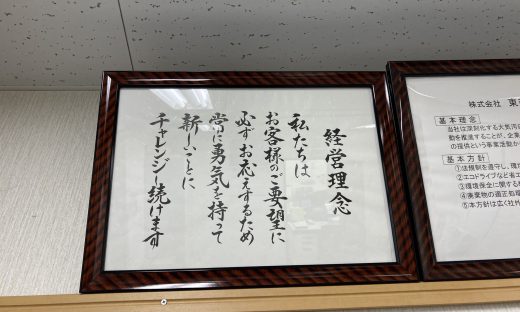 経営理念
私たちは
お客様のご要望に
必ずお応えするため
常に勇気を持って
新しいことに
チャレンジし続けます
株式会社 東
基本理念
当社は深刻化する大気汚
動を推進することが、環
の提供という事業活動か
基本方針
①法規制を遵守し、環
②エコドライブなど省エ
③環境保全に関する
④廃棄物の適正処理
⑤本方針は広く社外